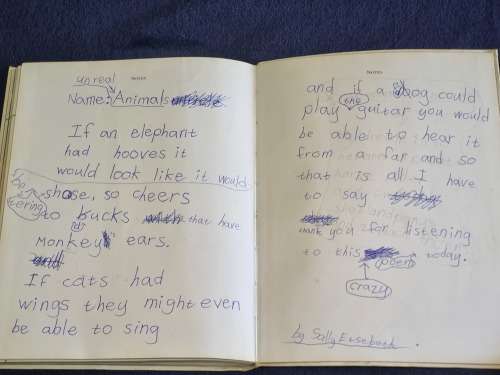 NOTES
unreal
Name: Animals
If an elephant
had hooves it
would look like it would
shose, so cheers
to bucks that have
monkey ears.
If cats had
wings they might even
be able to sing
NOTES
and if a dog could
play the guitar you would
be able to hear it
from a far and so
that is all I have
to say
thank you for listening
to this poem today.
crazy
by Sally